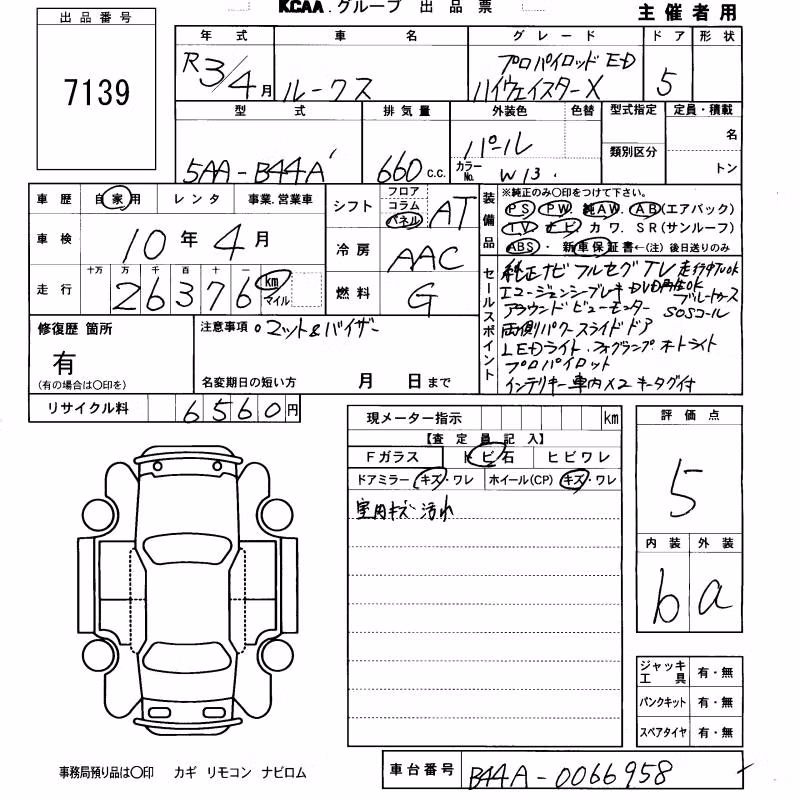 KCAA.グループ 出品票
主催者用
出品番号
7139
年式 車名 グレード ドア 形状
R3/4月 ルークス プロパイロットED ハイウェイスターX 5
型式 排気量 外装色 色替 型式指定 定員・積載
5AA-B44A 660 c.c. パール 名
カラーNo. W13 類別区分 トン
車歴 自家用 レンタ 事業.営業車
シフト フロア コラム パネル AT
装備品 ※純正のみ〇印をつけて下さい。
PS PW. 純AW. AB(エアバック)
TV ナビ カワ. SR(サンルーフ)
ABS・ 新車保証書←(注)後日送りのみ
車検 10年4月
冷房 AAC
走行 十万 万 千 百 十 一
26376 km マイル
燃料 G
セールスポイント
純正ナビ フルセグTV 走行中TVok
エマージェンシーブレーキ DVD再生ok
アラウンドビューモニター ブルートゥース
SOSコール
両側パワースライドドア
LEDライト.フォグランプ オートライト
プロパイロット
インテリキー車内×2 キータグ付
修復歴 箇所
有
(有の場合は〇印を)
注意事項 。マット&バイザー
名変期日の短い方 月 日まで
リサイクル料 6560円
現メーター指示 km
【査定員記入】
Fガラス トビ石 ヒビワレ
ドアミラー キズ・ワレ ホイール(CP) キズ・ワレ
室内キズ 汚れ
評価点
5
内装 外装
b a
ジャッキ工具 有・無
パンクキット 有・無
スペアタイヤ 有・無
事務局預り品は〇印 カギ リモコン ナビロム
車台番号 B44A-0066958